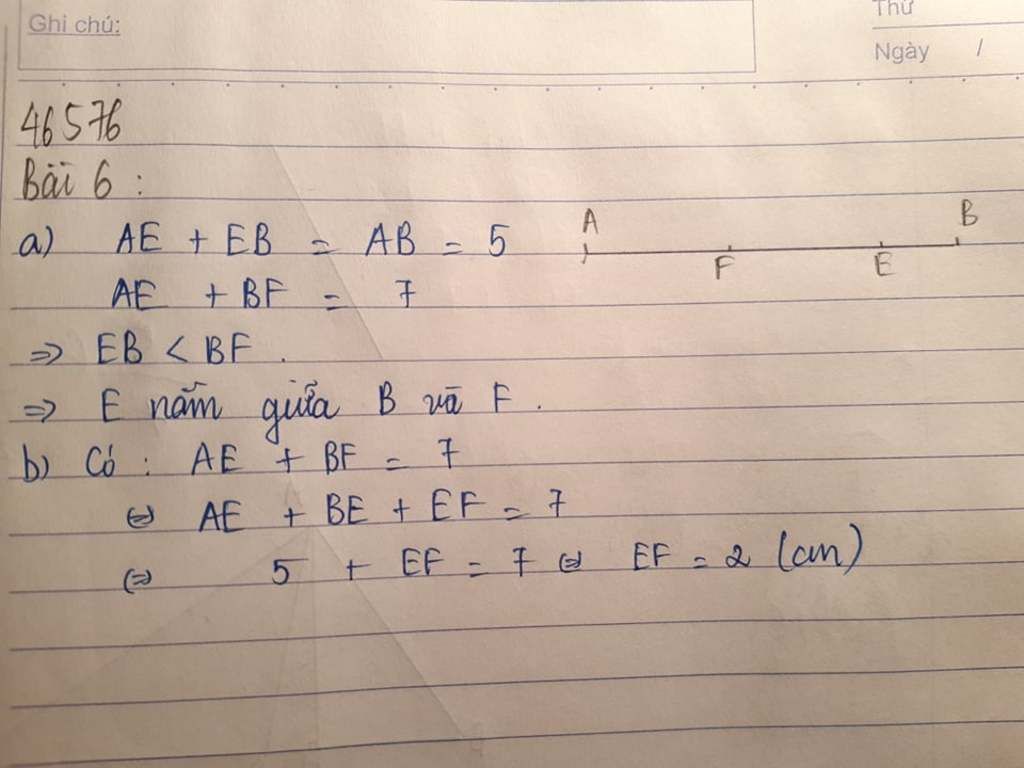 Ghi chú:
Thứ
Ngày /
46576
Bài 6 :
a) AE + EB = AB = 5
A B
F E
AE + BF = 7
=> EB < BF .
=> E nằm giữa B và F .
b) Có : AE + BF = 7
<=> AE + BE + EF = 7
<=> 5 + EF = 7 <=> EF = 2 (cm)